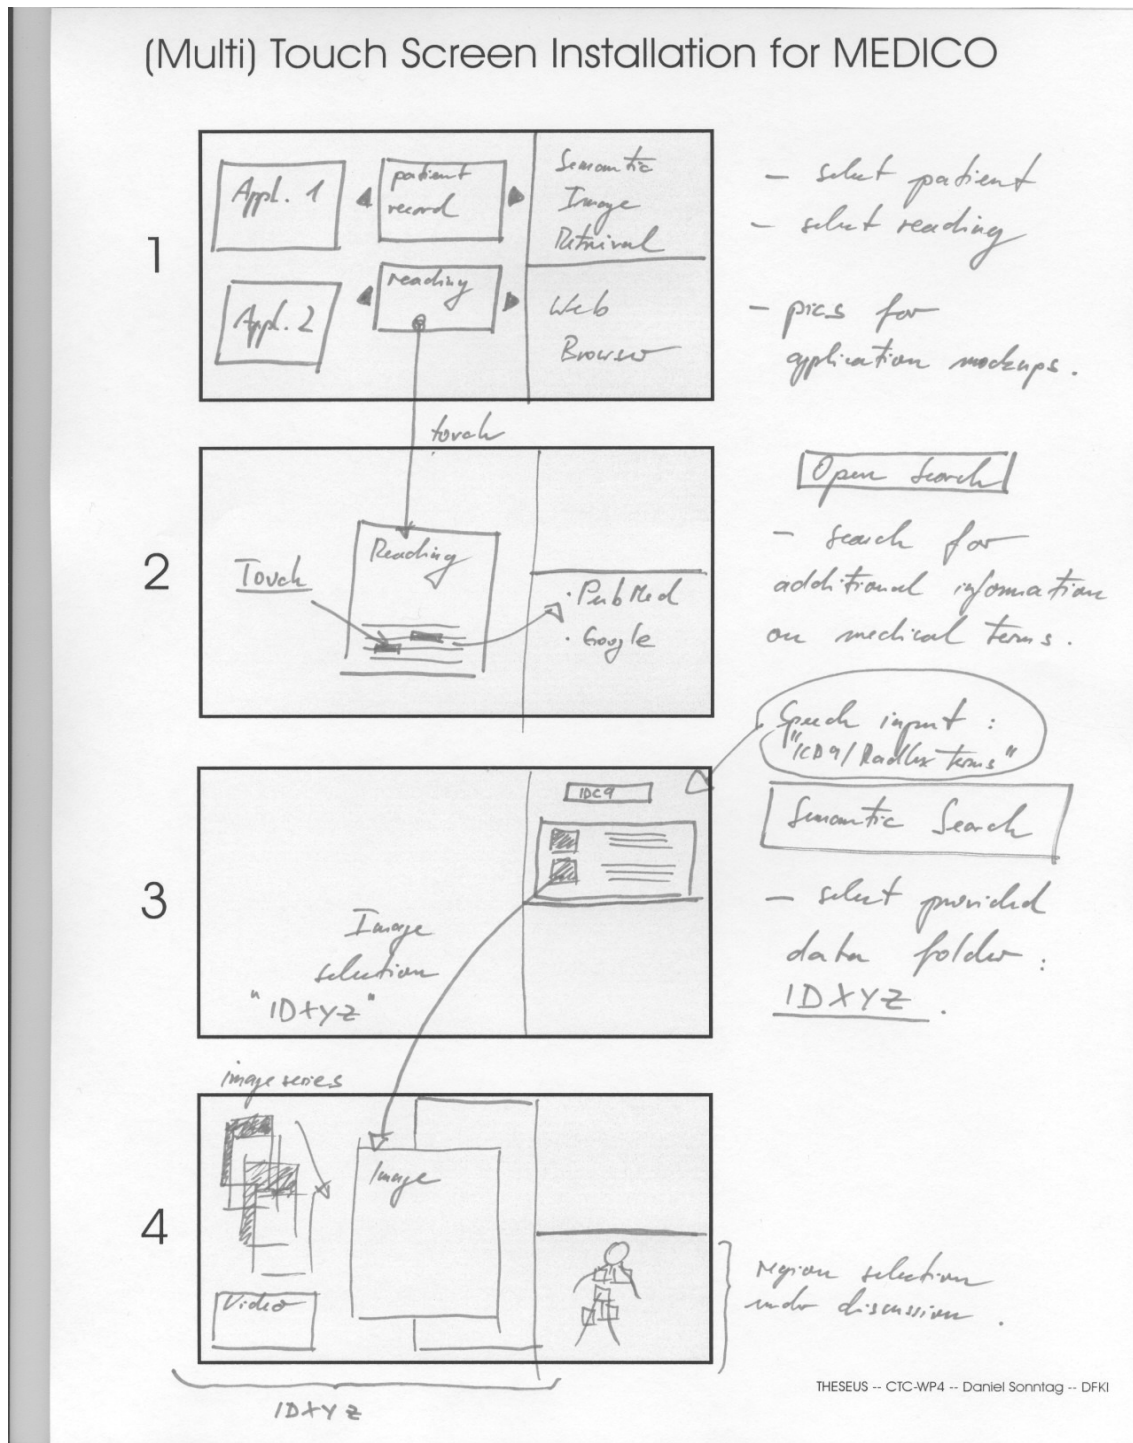 (Multi) Touch Screen Installation for MEDICO
1
Appl. 1
patient
record
Semantic
Image
Retrieval
Appl. 2
reading
Web
Browser
- select patient
- select reading
- pics for
application mockups.
touch
2
Touch
Reading
· PubMed
· Google
Open Search
- search for
additional information
on medical terms.
Speech input :
"ICD9/Radlex terms"
3
IDC9
Image
selection
"IDXYZ"
Semantic Search
- select provided
data folder :
IDXYZ .
4
image series
Video
Image
region selection
under discussion .
IDXYZ
THESEUS -- CTC-WP4 -- Daniel Sonntag -- DFKI